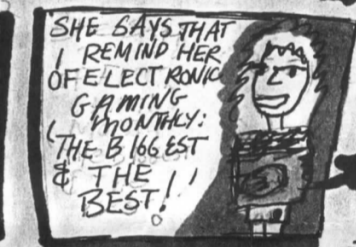 SHE SAYS THAT
I REMIND HER
OF ELECTRONIC
GAMING
MONTHLY:
"THE BIGGEST
& THE
BEST!"